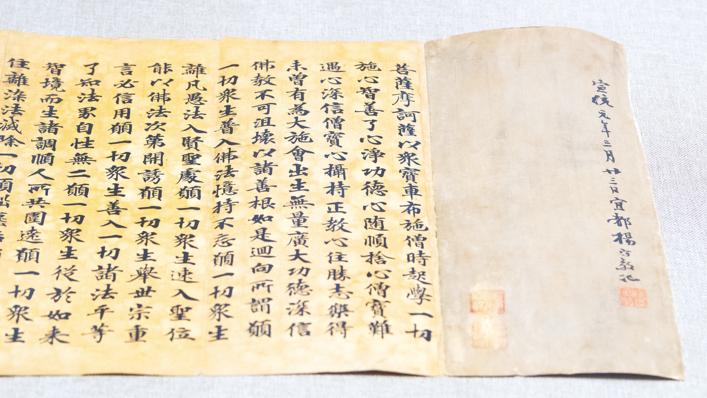 宣統元年三月廿三日宜都楊守敬記
菩薩摩訶薩以衆寶車布施僧時起學一切
施心智善了心淨功德心随順捨心僧寶難
遇心深信僧寶心攝持正教心住勝志樂得
未曾有為大施會出生無量廣大功德深信
佛教不可沮壞以諸善根如是迴向所謂願
一切衆生普入佛法憶持不忘願一切衆生
離凡愚法入賢聖處願一切衆生速入聖位
能以佛法次第開誘願一切衆生舉世宗重
言必信用願一切衆生善入一切諸法平等
了知法界自性無二願一切衆生從於如来
智境而生諸調順人所共圍遶願一切衆生
住離染法滅除一切